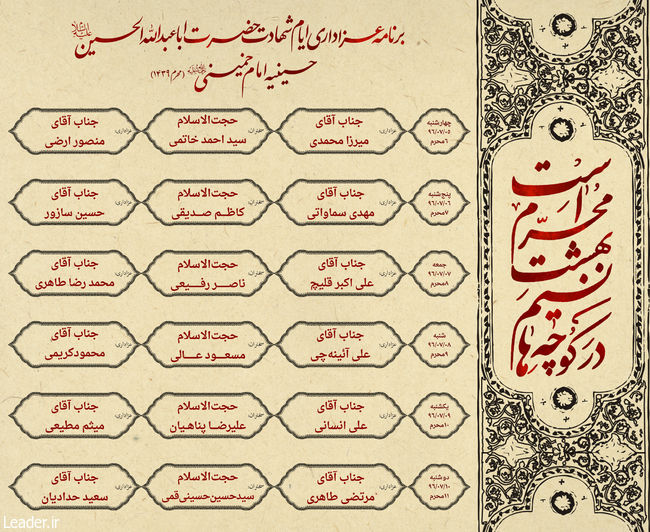 برنامه عزاداری ایام شهادت حضرت اباعبدالله الحسین علیه‌السلام
حسینیه امام خمینی (محرم ۱۴۳۹)
در کوچه‌ها
نسیم
بهشت
محرّم
است
چهارشنبه
۹۶/۰۷/۰۵
۶محرم
عزاداری: جناب آقای
میرزا محمدی
سخنران: حجت‌الاسلام
سید احمد خاتمی
عزاداری: جناب آقای
منصور ارضی
پنج‌شنبه
۹۶/۰۷/۰۶
۷محرم
عزاداری: جناب آقای
مهدی سماواتی
سخنران: حجت‌الاسلام
کاظم صدیقی
عزاداری: جناب آقای
حسین سازور
جمعه
۹۶/۰۷/۰۷
۸محرم
عزاداری: جناب آقای
علی اکبر قلیچ
سخنران: حجت‌الاسلام
ناصر رفیعی
عزاداری: جناب آقای
محمد رضا طاهری
شنبه
۹۶/۰۷/۰۸
۹محرم
عزاداری: جناب آقای
علی آئینه‌چی
سخنران: حجت‌الاسلام
مسعود عالی
عزاداری: جناب آقای
محمودکریمی
یکشنبه
۹۶/۰۷/۰۹
۱۰محرم
عزاداری: جناب آقای
علی انسانی
سخنران: حجت‌الاسلام
علیرضا پناهیان
عزاداری: جناب آقای
میثم مطیعی
دوشنبه
۹۶/۰۷/۱۰
۱۱محرم
عزاداری: جناب آقای
مرتضی طاهری
سخنران: حجت‌الاسلام
سیدحسین‌حسینی‌قمی
عزاداری: جناب آقای
سعید حدادیان
Leader.ir